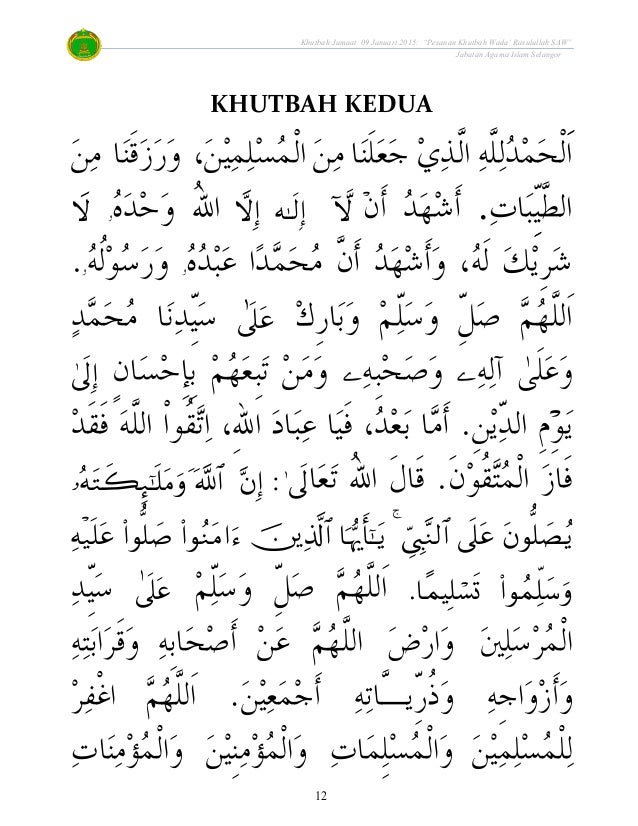 Khutbah Jumaat 09 Januari 2015: “Pesanan Khutbah Wada’ Rasulullah SAW”
Jabatan Agama Islam Selangor
KHUTBAH KEDUA
اَلْحَمْدُلِلَّهِ الَّذِيْ جَعَلَنَا مِنَ الْمُسْلِمِيْنَ، وَرَزَقَنَا مِنَ
الطَّيِّبَاتِ. أَشْهَدُ أَنْ لَّآ إِلٰه إِلَّا اللهُ وَحْدَهُ, لَا
شَرِيْكَ لَهُ، وَأَشْهَدُ أَنَّ مُحَمَّدًا عَبْدُهُ, وَرَسُوْلُهُ,.
اَللَّهُمَّ صَلِّ وَسَلِّمْ وَبَارِكْ عَلَىٰ سَيِّدِنَا مُحَمَّدٍ
وَعَلَىٰ آلِهِے وَصَحْبِهِے وَمَنْ تَبِعَهُمْ بِإِحْسَانٍ إِلَىٰ
يَوْمِ الدِّيْنِ. أَمَّا بَعْدُ، فَيَا عِبَادَ اللهِ، اِتَّقُوْا اللَّهَ فَقَدْ
فَازَ الْمُتَّقُوْنَ. قَالَ اللهُ تَعَالَىٰ: إِنَّ ٱللَّهَ وَمَلَـٰٓئِكَتَهُۥ
يُصَلُّونَ عَلَى ٱلنَّبِىِّ ۚ يَـٰٓأَيُّهَا ٱلَّذِينَ ءَامَنُوا۟ صَلُّوا۟ عَلَيْهِ
وَسَلِّمُوا۟ تَسْلِيمًا. اَللَّهُمَّ صَلِّ وَسَلِّمْ عَلَىٰ سَيِّدِ
الْمُرْسَلِيْنَ وَارْضَ اللَّهُمَّ عَنْ أَصْحَابِهِ وَقَرَابَتِهِ
وَأَزْوَاجِهِ وَذُرِّيَّاتِهِ أَجْمَعِيْنَ. اَللَّهُمَّ اغْفِرْ
لِلْمُسْلِمِيْنَ وَالْمُسْلِمَاتِ وَالْمُؤْمِنِيْنَ وَالْمُؤْمِنَاتِ
12